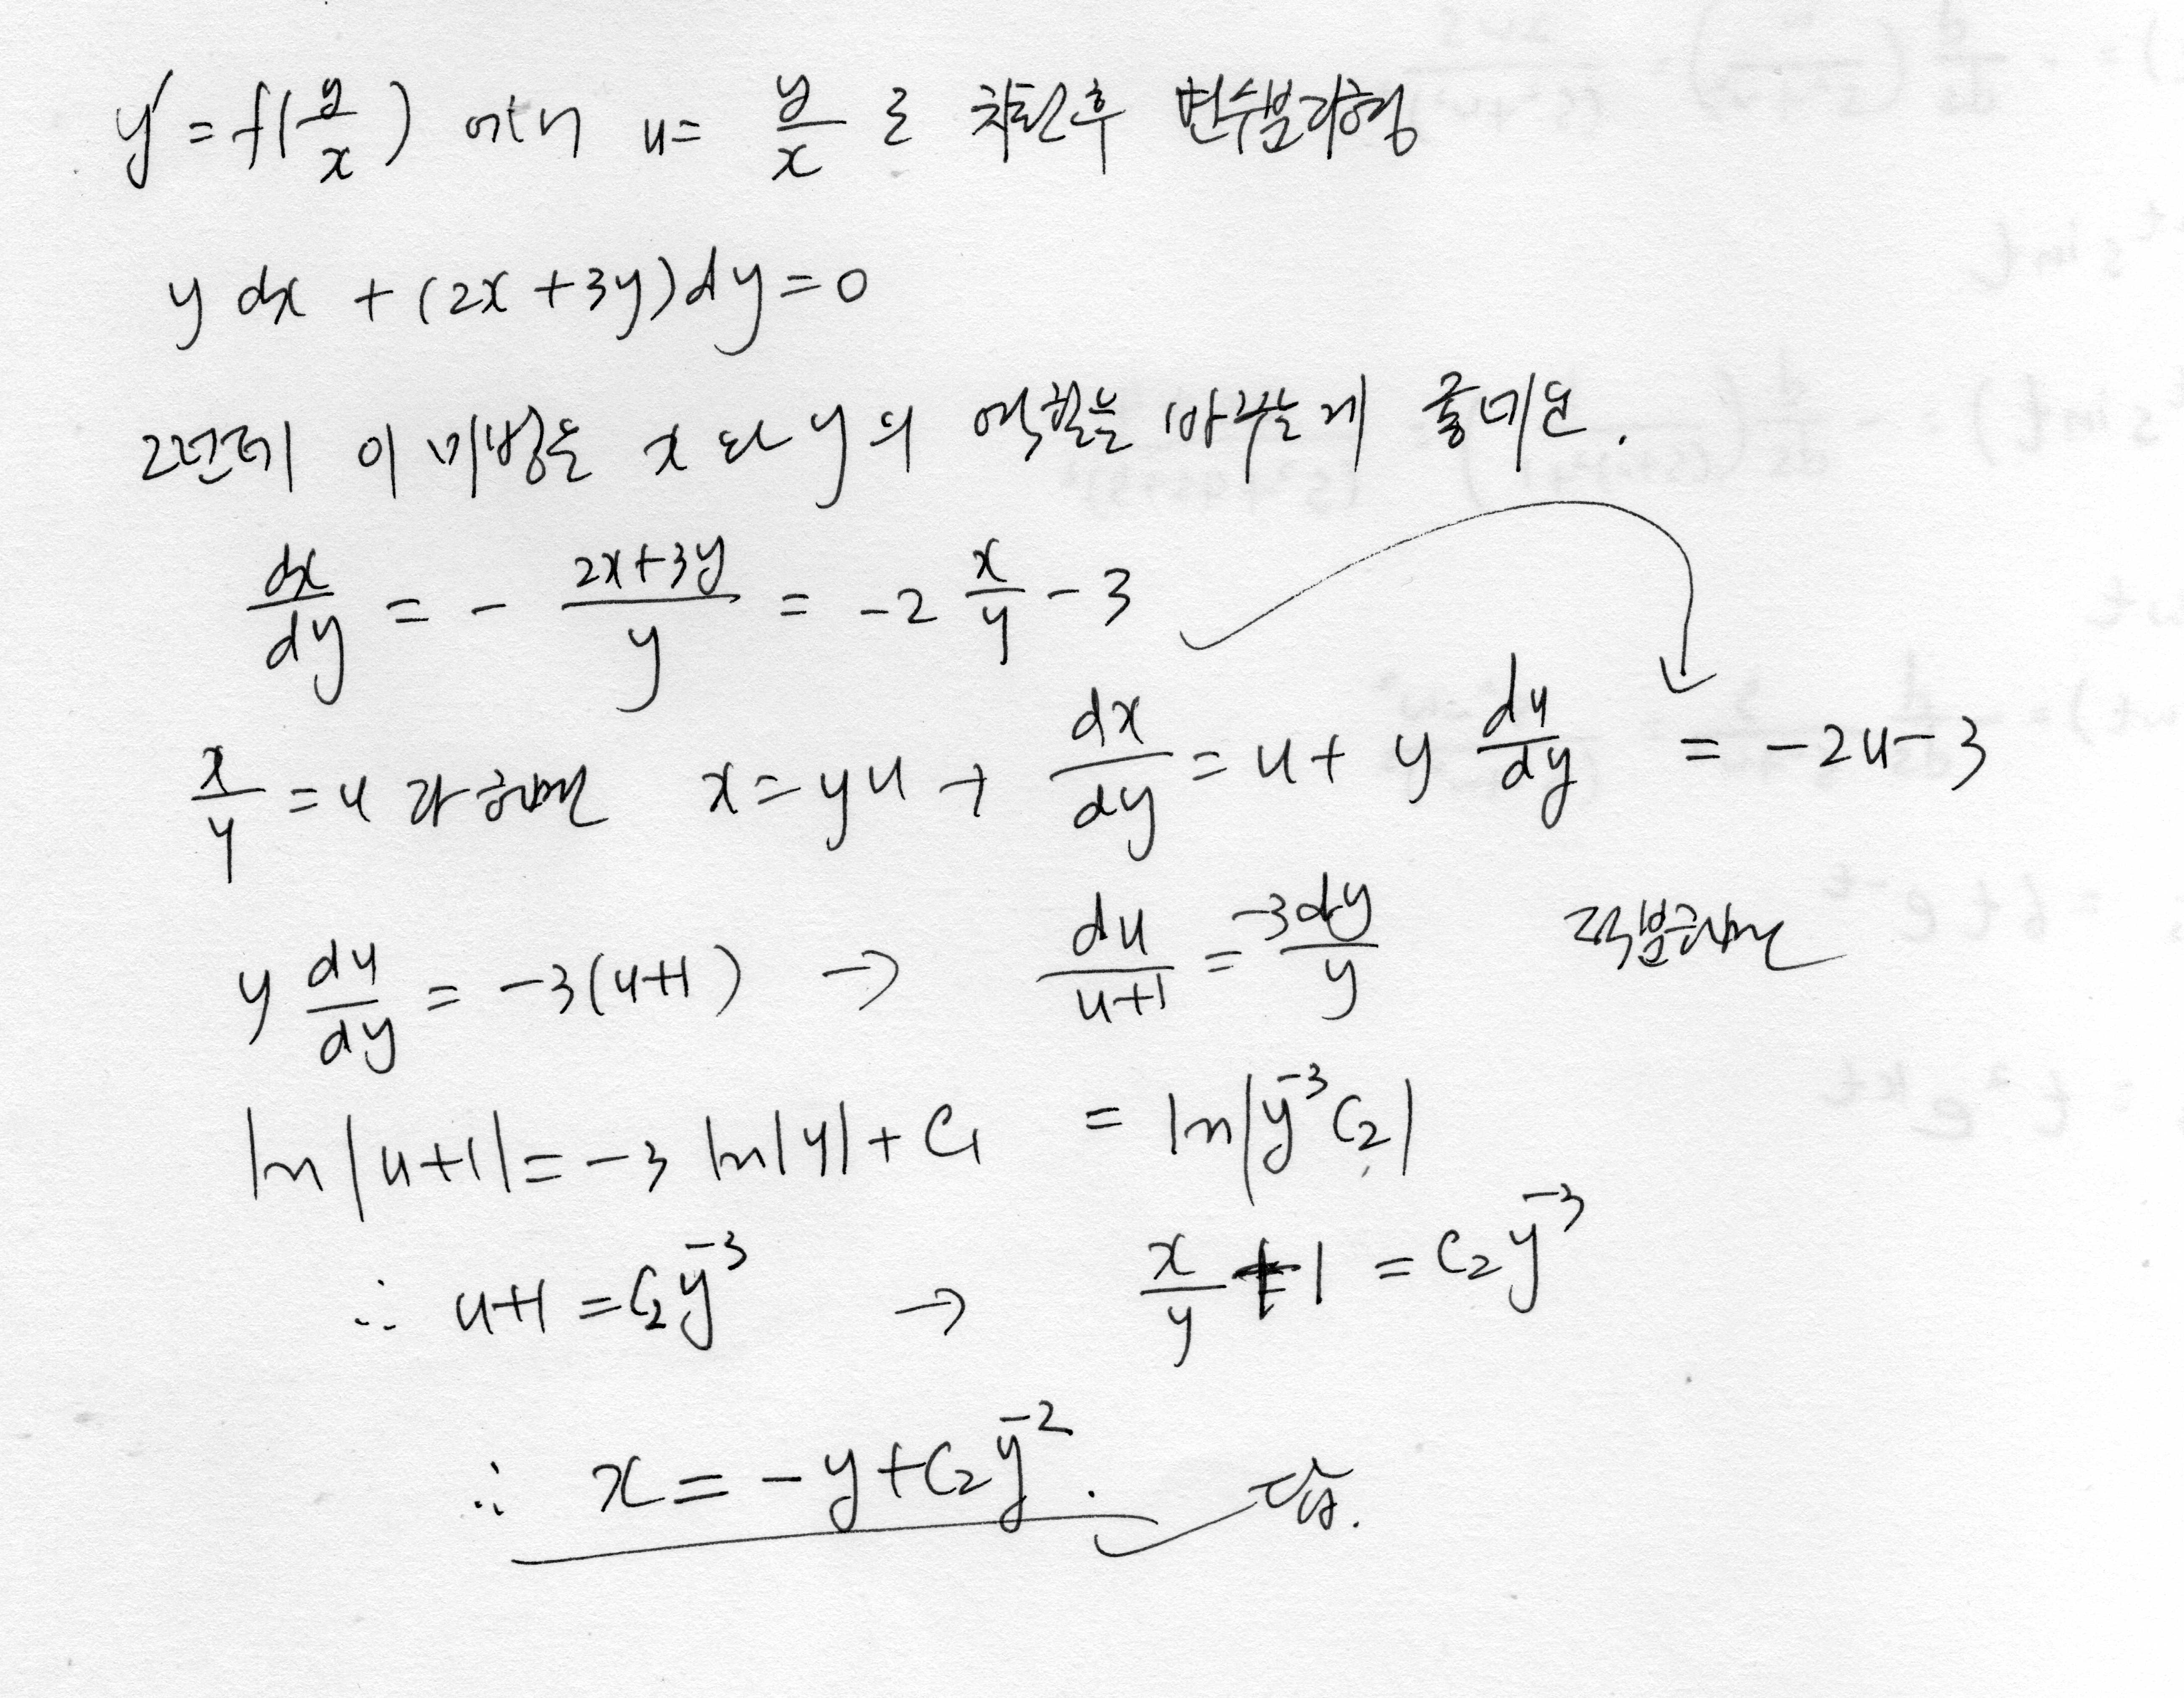 y' = f(y/x) 에서 u = y/x 로 치환후 변수분리형
y dx + (2x+3y)dy = 0
그런데 이 미방은 x와 y의 역할을 바꾸는게 좋네요.
dx/dy = - (2x+3y)/y = -2 x/y - 3
x/y = u 라하면 x = yu → dx/dy = u + y du/dy = -2u-3
y du/dy = -3(u+1) → du/(u+1) = -3dy/y 적분하면
ln|u+1| = -3 ln|y| + C₁ = ln|y⁻³C₂|
∴ u+1 = C₂y⁻³ → x/y + 1 = C₂y⁻³
∴ x = -y + C₂y⁻².